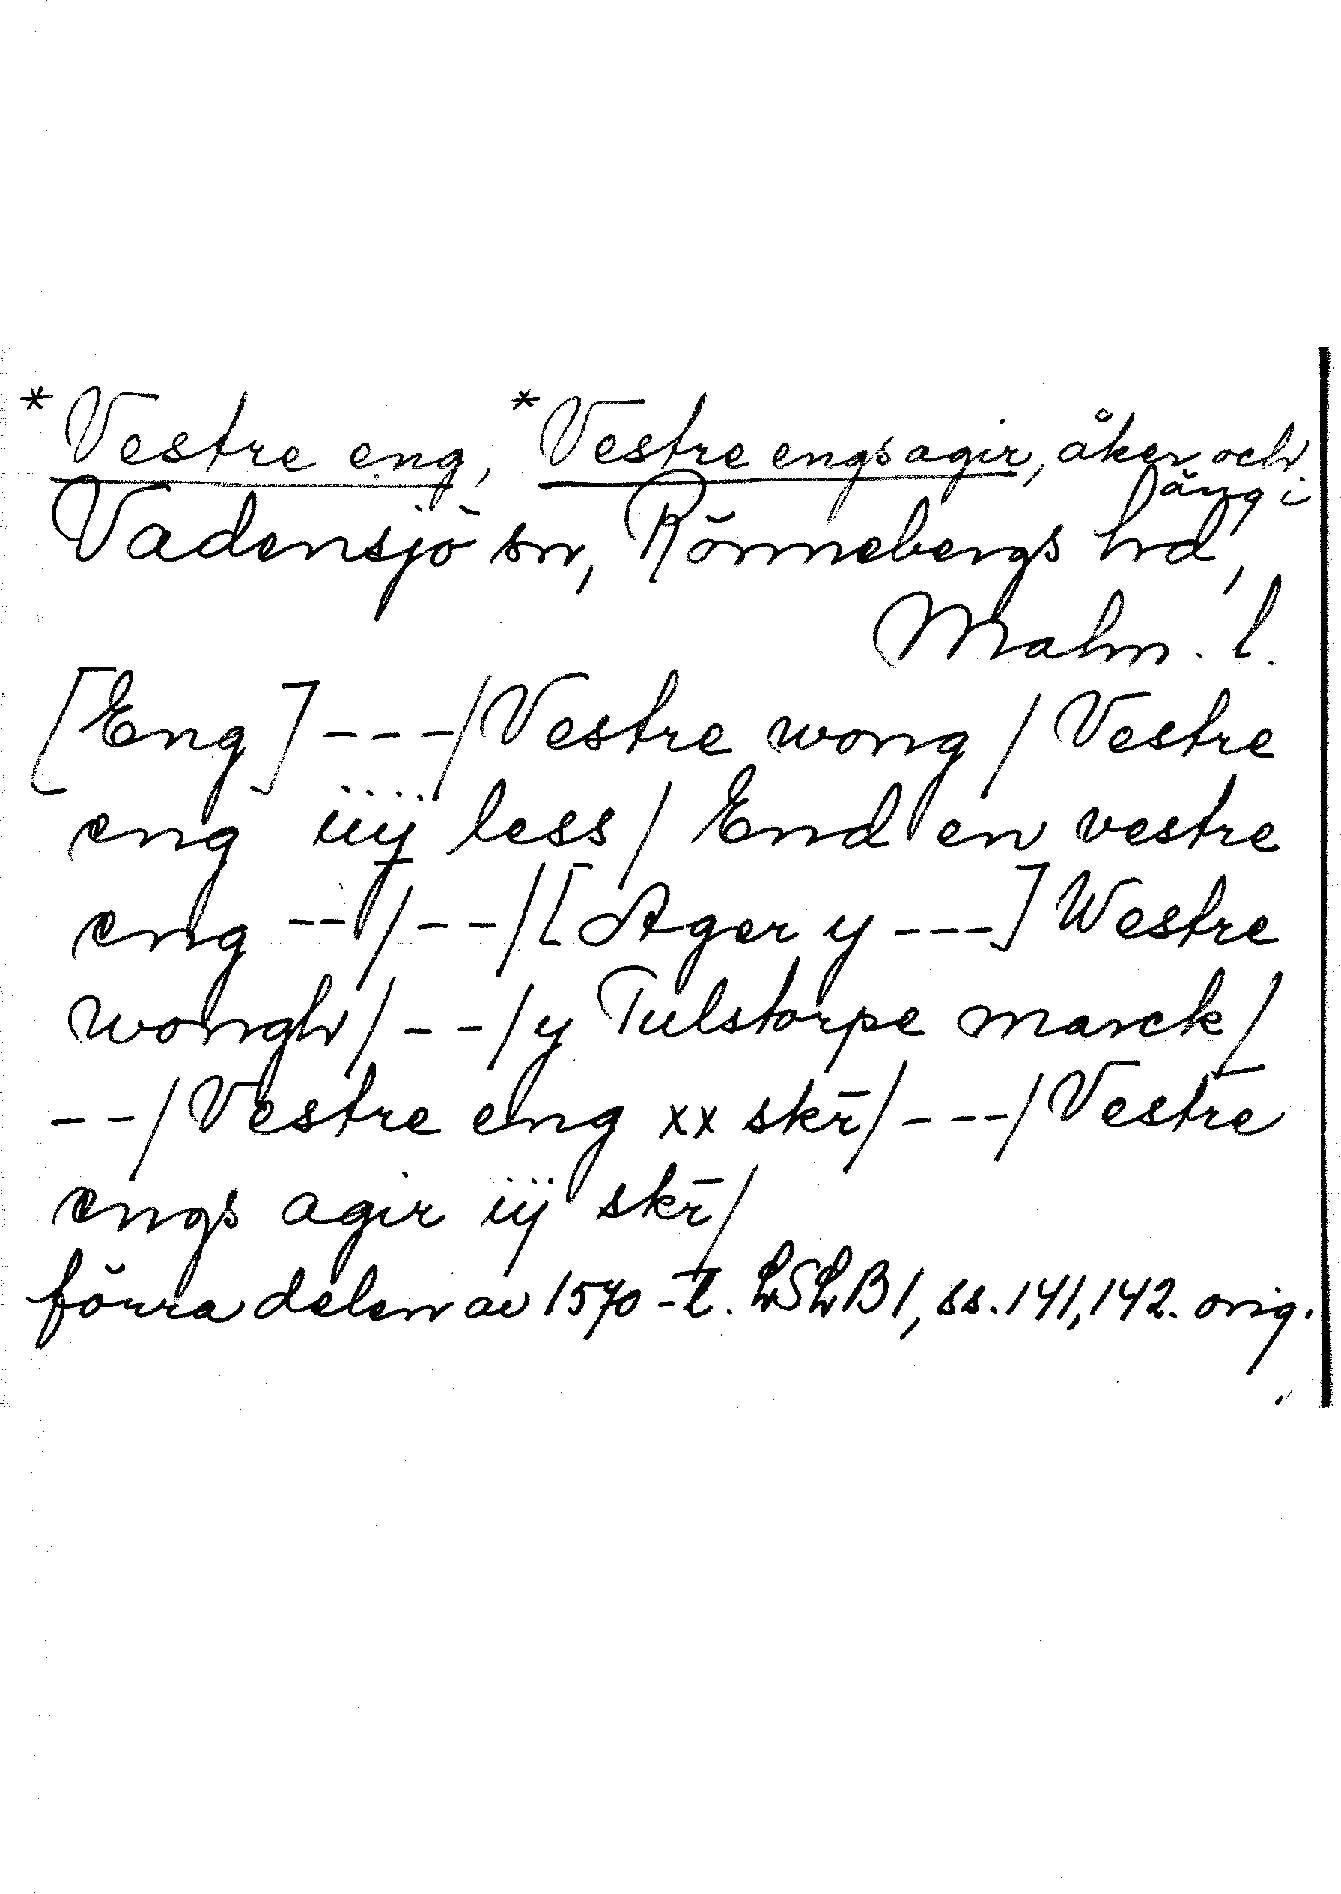 *Vestre eng, *Vestre engsagir, åker och
äng i
Vadensjö sn, Rönnebergs hd,
Malm. l.
[Eng] ---/Vestre wong / Vestre
eng iiij less / End en vestre
eng --/ --/[Ager y ---] Westre
wongh/ --/ y Tulstorpe marck/
--/ Vestre eng xx skr̄/ ---/ Vestre
engs agir iij skr̄/
förra delen av 1570-t. LSLB1, ss. 141, 142. orig.